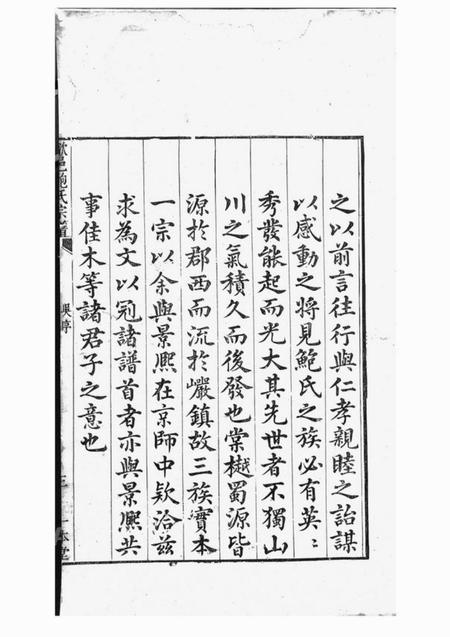 之以前言往行與仁孝親睦之詒謀
以感動之將見鮑氏之族必有英〻
秀發能起而光大其先世者不獨山
川之氣積久而後發也棠樾蜀源皆
源於郡西而流於巖鎮故三族實本
一宗以余與景熈在京師中欵洽茲
求為文以冠諸譜首者亦與景熈共
事佳木等諸君子之意也
邑鮑氏宗譜